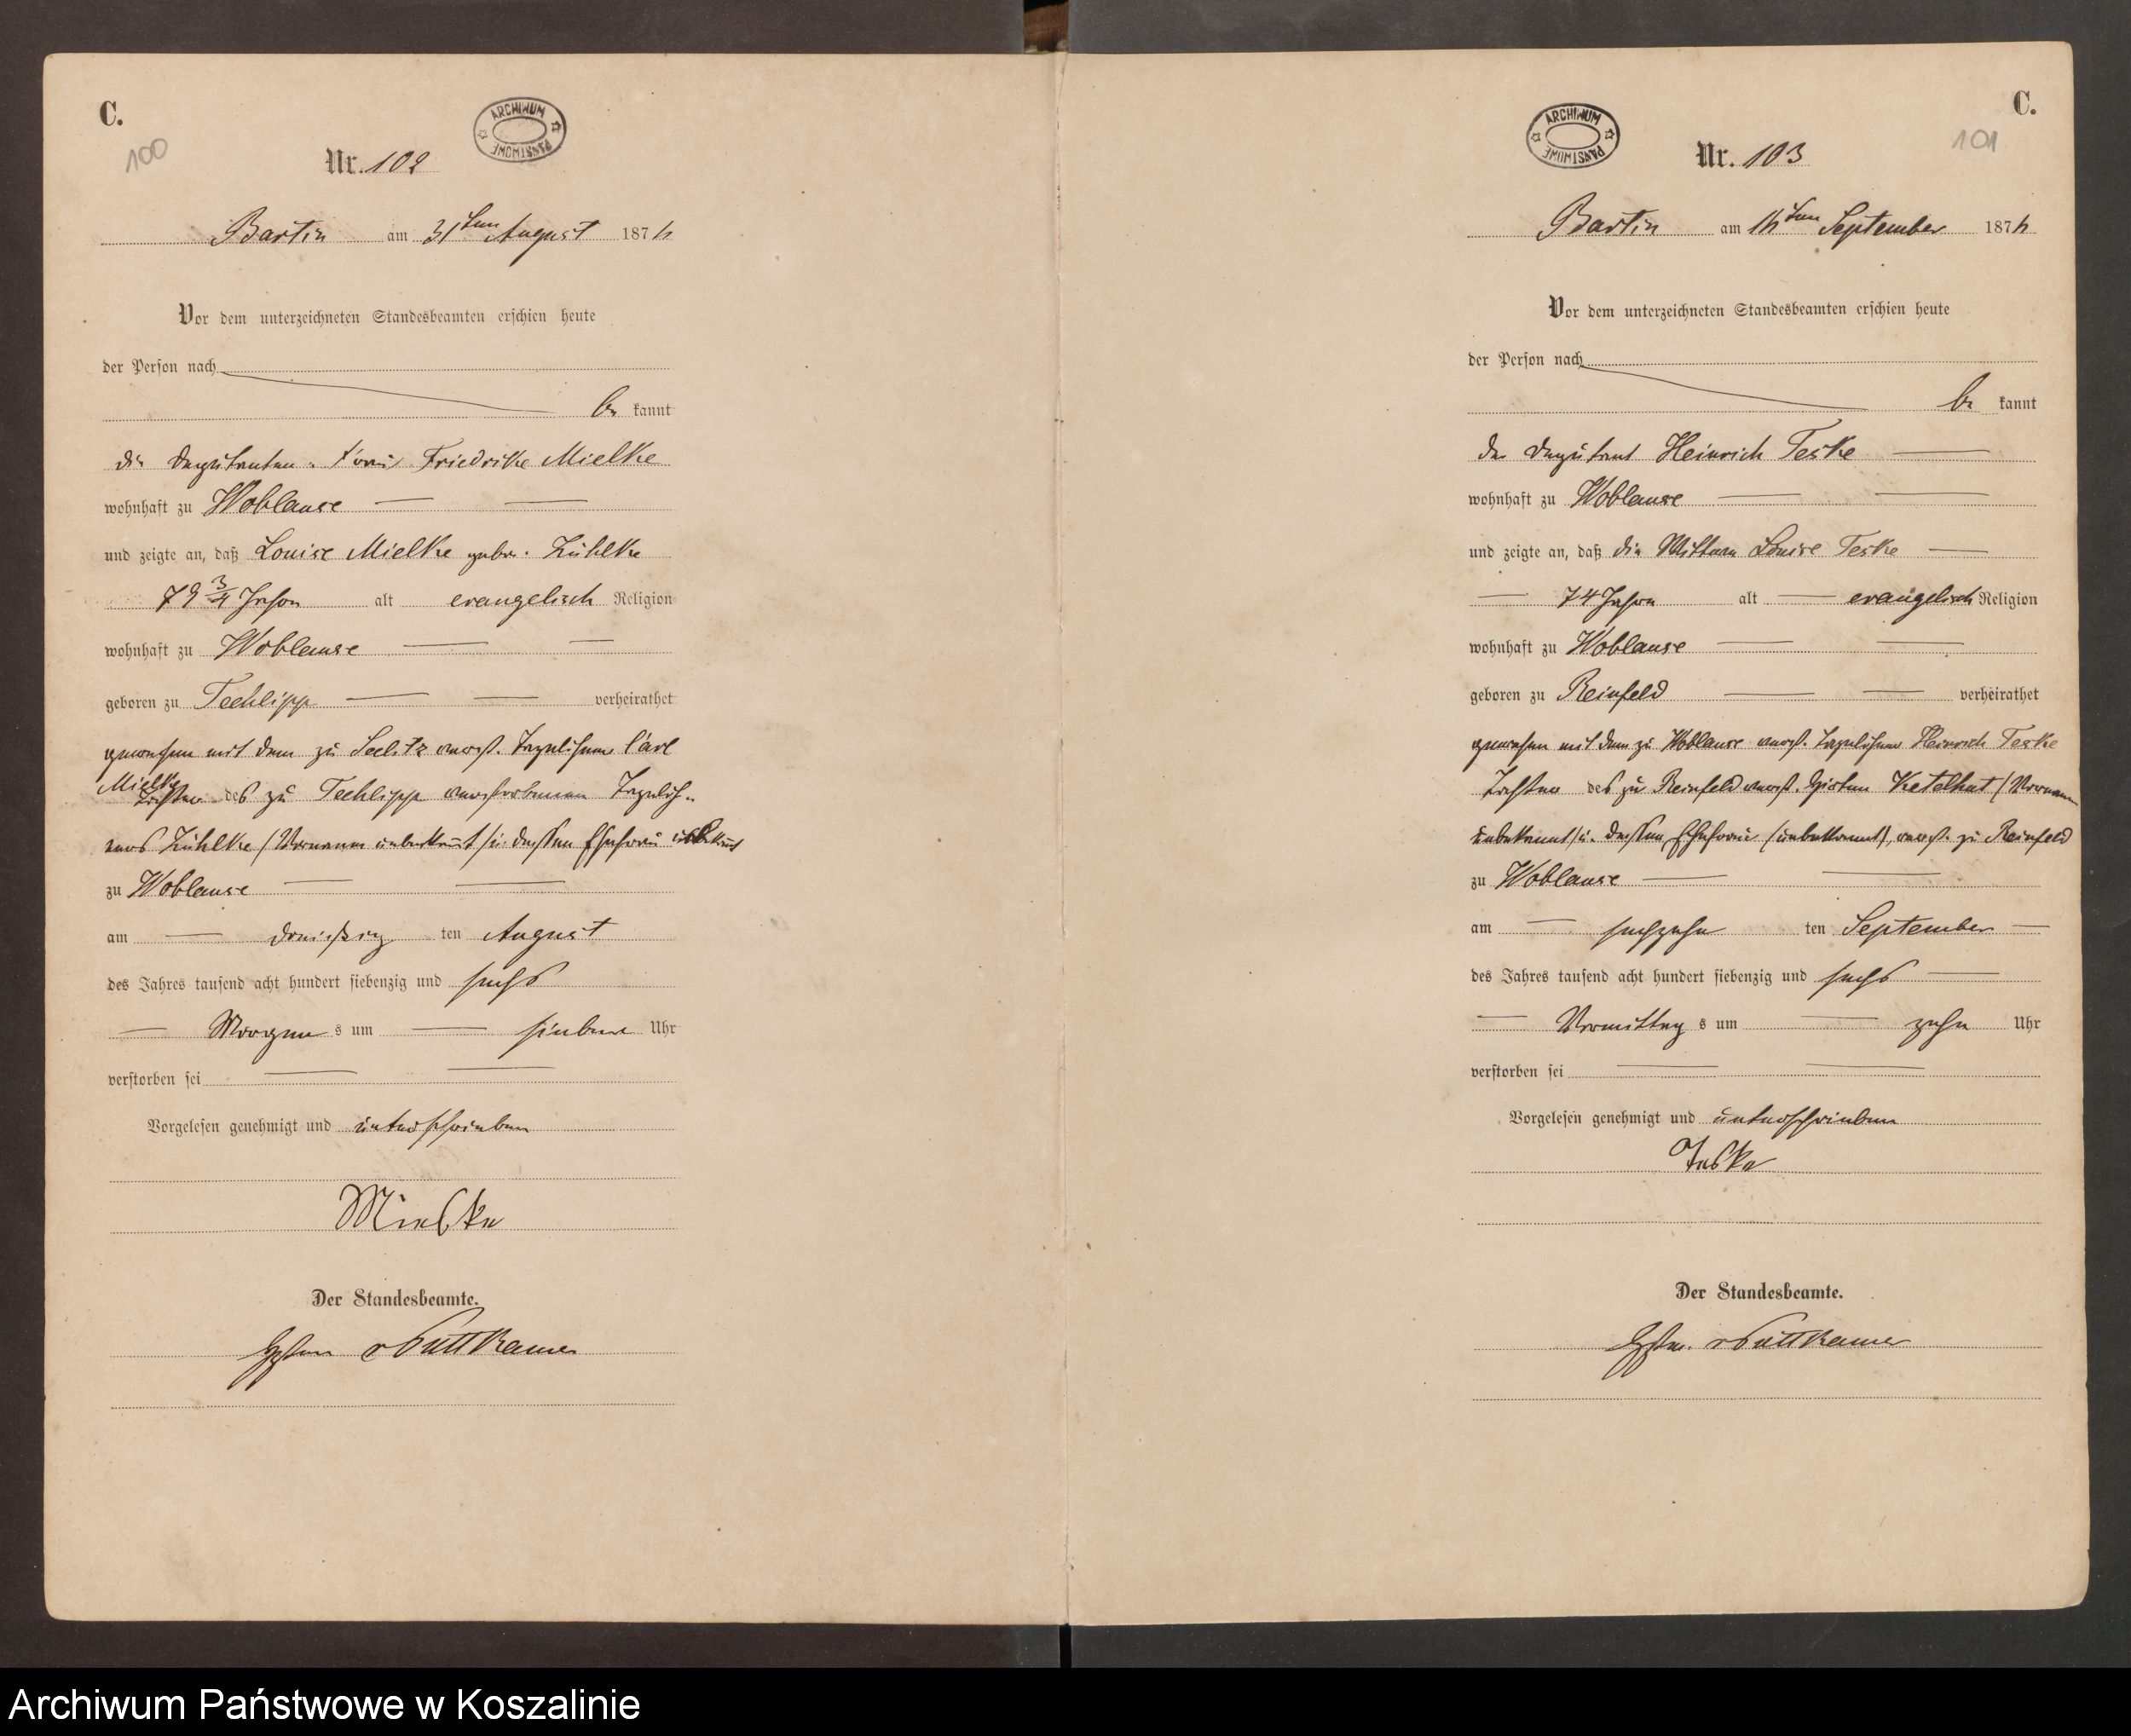 C.
100
ARCHIWUM PAŃSTWOWE
Nr. 102
Bartin am 31ten August 1876
Vor dem unterzeichneten Standesbeamten erschien heute
der Person nach
be kannt
die Deputanten-Frau Friedrike Mielke
wohnhaft zu Woblanse
und zeigte an, daß Louise Mielke geber. Zühlke
79 3/4 Jahre alt evangelisch Religion
wohnhaft zu Woblanse
geboren zu Techlipp verheirathet
gewesen mit dem zu Seelitz verst. Tagelöhner Carl
Mielke
Tochter des zu Techlipp verstorbenen Tagelöh-
ners Zühlke (Vorname unbekannt) u. dessen Ehefrau unbekannt
zu Woblanse
am dreißig ten August
des Jahres tausend acht hundert siebenzig und sechs
Morgen s um sieben Uhr
verstorben sei
Vorgelesen genehmigt und unterschrieben
Mielke
Der Standesbeamte.
v Puttkamer
C.
101
ARCHIWUM PAŃSTWOWE
Nr. 103
Bartin am 16ten September 1876
Vor dem unterzeichneten Standesbeamten erschien heute
der Person nach
be kannt
der Deputant Heinrich Teske
wohnhaft zu Woblanse
und zeigte an, daß die Wittwe Louise Teske
74 Jahre alt evangelisch Religion
wohnhaft zu Woblanse
geboren zu Reinfeld verheirathet
gewesen mit dem zu Woblanse verst. Tagelöhner Heinrich Teske
Tochter des zu Reinfeld verst. Hirten Ketelhut (Vorname
unbekannt) u. dessen Ehefrau (unbekannt), verst. zu Reinfeld
zu Woblanse
am sechzehn ten September
des Jahres tausend acht hundert siebenzig und sechs
Vormittag s um zehn Uhr
verstorben sei
Vorgelesen genehmigt und unterschrieben
Teske
Der Standesbeamte.
v Puttkamer
Archiwum Państwowe w Koszalinie